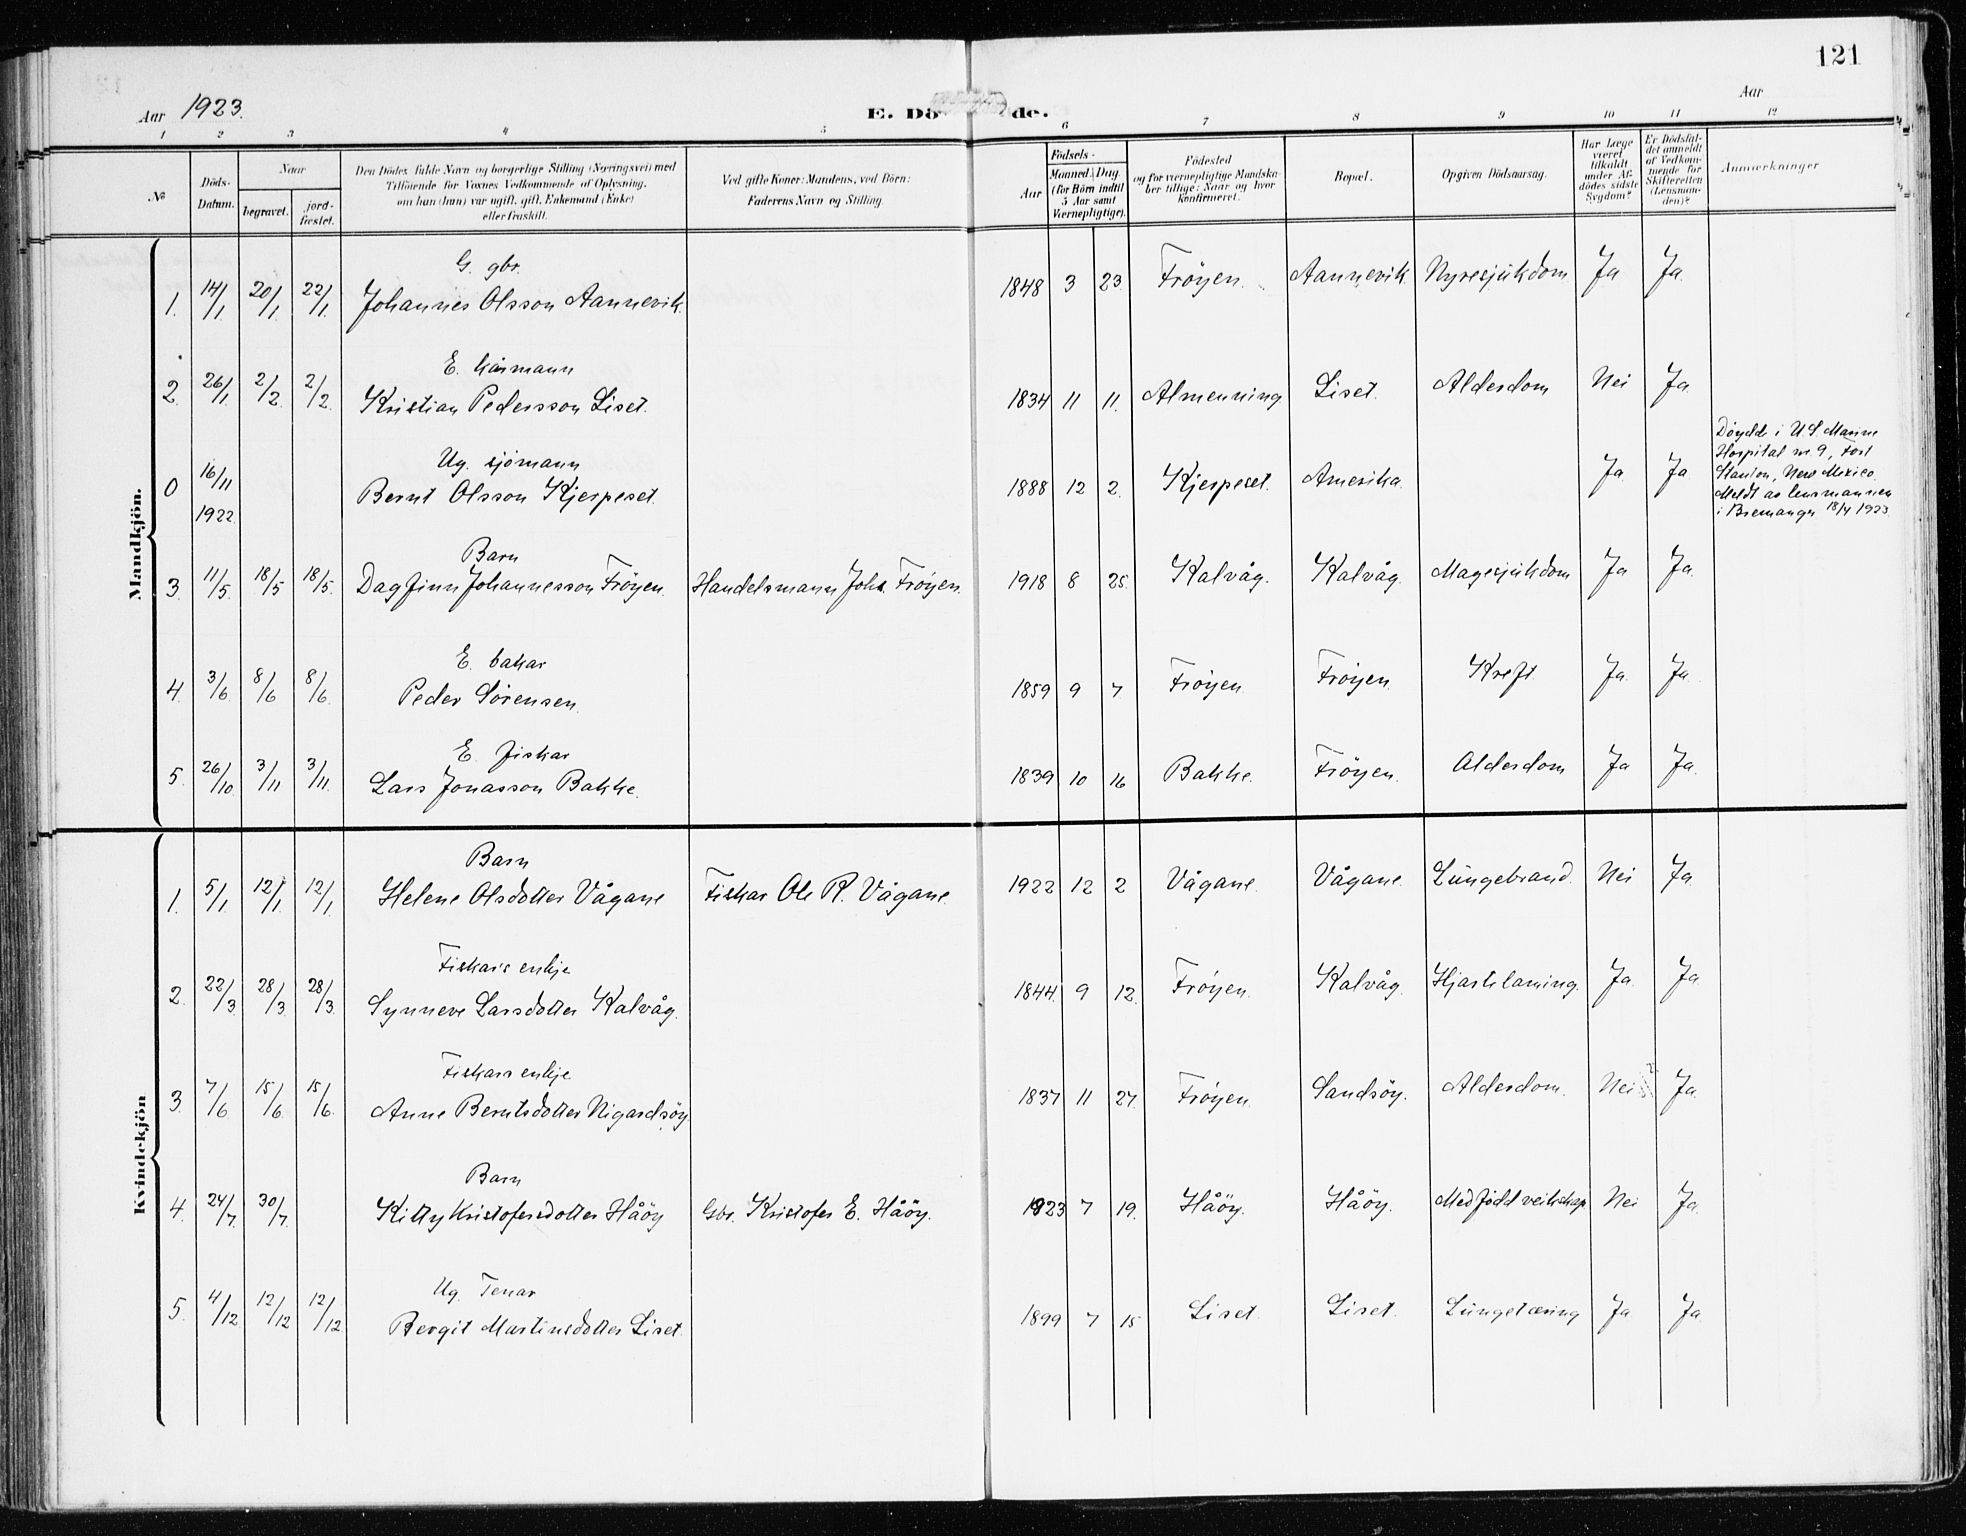 121
Aar 1923. E. Dö de. Aar
1 2 3 4 5 6 7 8 9 10 11 12
№ Döds-Datum. Naar begravet. jordfæstet. Den Dödes fulde Navn og borgerlige Stilling (Næringsvei) med Tilföiende for Voxnes Vedkommende af Oplysning, om han (hun) var ugift, gift, Enkemand (Enke) eller fraskilt. Ved gifte Koner: Mandens, ved Börn: Faderens Navn og Stilling. Födsels- Aar Maaned Dag (for Börn indtil 5 Aar samt Værnepligtige). Födested og for værnepligtige Mandskaber tillige: Naar og hvor Konfirmeret. Bopæl. Opgiven Dödsaarsag. Har Læge været tilkaldt under Afdödes sidste Sygdom? Er Dödsfaldet anmeldt af Vedkommende for Skifteretten (Lensmanden)? Anmærkninger
Mandkjön.
G. gbr.
1. 14/1 20/1 22/1 Johannes Olsson Aannevik. 1848 3 23. Fröyen. Aannevik Nyresjukdom Ja Ja.
E. kårmann
2. 26/1 2/2 2/2 Kristian Pedersson Liset. 1834 11 11. Almenning Liset. Alderdom Nei Ja.
Ug. sjömann
0 16/11 1922 Bernt Olsson Kjerpeset. 1888 12 2. Kjerpeset. Amerika. Ja Ja
Döydde i U.S. Marine
Hospital nr. 9, Fort
Stanton, New Mexico.
Meldt av lensmannen
i Bremanger 18/4 1923.
Barn
3. 11/5 18/5 18/5. Dagfinn Johannesson Fröyen. Handelsmann Johs. Fröyen. 1918 8 25. Kalvåg. Kalvåg. Magesjukdom Ja Ja.
E. bakar
4. 3/6 8/6 8/6 Peder Sörensen. 1859 9 7 Fröyen. Fröyen. Kreft. Ja. Ja.
E. fiskar
5. 26/10 3/11 3/11. Lars Jonasson Bakke. 1839 10 16 Bakke. Fröyen. Alderdom Ja Ja.
Kvindekjön
Barn
1. 5/1 12/1 12/1 Helene Olsdotter Vågane Fiskar Ole R. Vågane. 1922 12 2 Vågane. Vågane. Lungebrand. Nei Ja.
Fiskars enkje
2. 22/3 28/3 28/3 Synneve Larsdotter Kalvåg. 1844. 9 12. Fröyen. Kalvåg. Hjartelaming. Ja. Ja
Fiskars enkje
3. 7/6 15/6 15/6 Anne Berntsdotter Nigardsöy. 1837 11 27. Fröyen. Sandsöy. Alderdom. Nei Ja.
Barn
4. 24/7 30/7 Kitty Kristofersdotter Håöy Gbr. Kristofer E. Håöy. 1923 7 19. Håöy. Håöy. Medfödd veikskap. Nei Ja.
Ug. Tenar
5. 4/12 12/12 12/12 Bergit Martinsdotter Liset. 1899 7 15 Liset. Liset. Lungetæring Ja Ja.